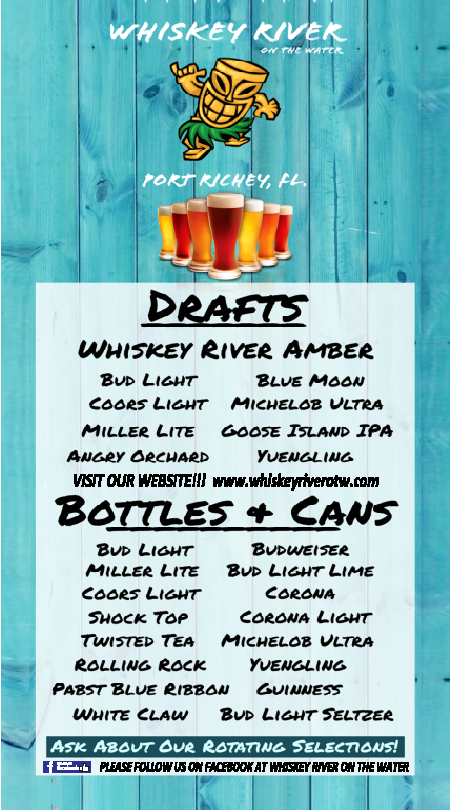 WHISKEY RIVER
ON THE WATER
PORT RICHEY, FL.
DRAFTS
WHISKEY RIVER AMBER
BUD LIGHT BLUE MOON
COORS LIGHT MICHELOB ULTRA
MILLER LITE GOOSE ISLAND IPA
ANGRY ORCHARD YUENGLING
VISIT OUR WEBSITE!!! www.whiskeyriverotw.com
BOTTLES & CANS
BUD LIGHT BUDWEISER
MILLER LITE BUD LIGHT LIME
COORS LIGHT CORONA
SHOCK TOP CORONA LIGHT
TWISTED TEA MICHELOB ULTRA
ROLLING ROCK YUENGLING
PABST BLUE RIBBON GUINNESS
WHITE CLAW BUD LIGHT SELTZER
ASK ABOUT OUR ROTATING SELECTIONS!
PLEASE FOLLOW US ON FACEBOOK AT WHISKEY RIVER ON THE WATER